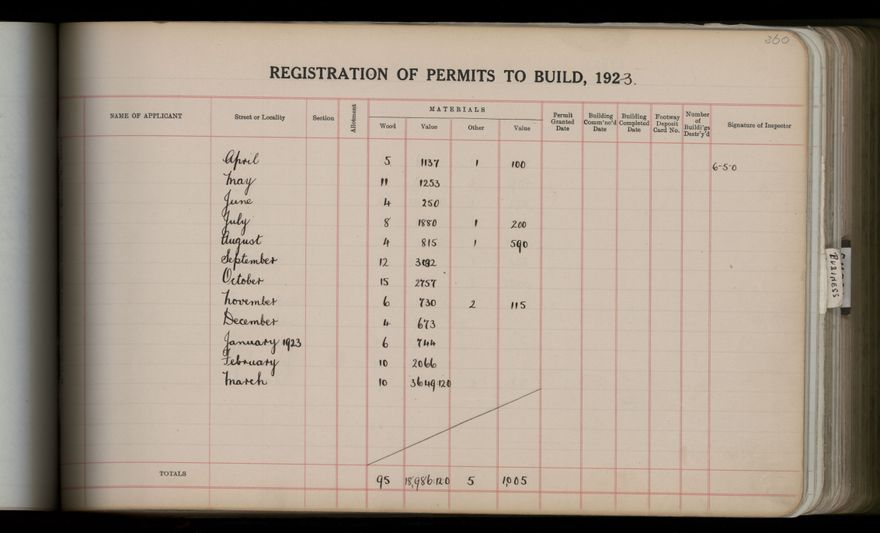 360
REGISTRATION OF PERMITS TO BUILD, 1923.
NAME OF APPLICANT Street or Locality Section Allotment MATERIALS Permit Granted Date Building Comm'nc'd Date Building Completed Date Footway Deposit Card No. Number of Buildi'gs Destr'y'd Signature of Inspector
Wood Value Other Value
April 5 1137 1 100 6-5-0
May 11 1253
June 4 250
July 8 1880 1 200
August 4 815 1 590
September 12 3032
October 15 2757
November 6 730 2 115
December 4 673
January 1923 6 744
February 10 2066
March 10 3649.12.0
TOTALS 95 18,986.12.0 5 1,005
BUSINESS